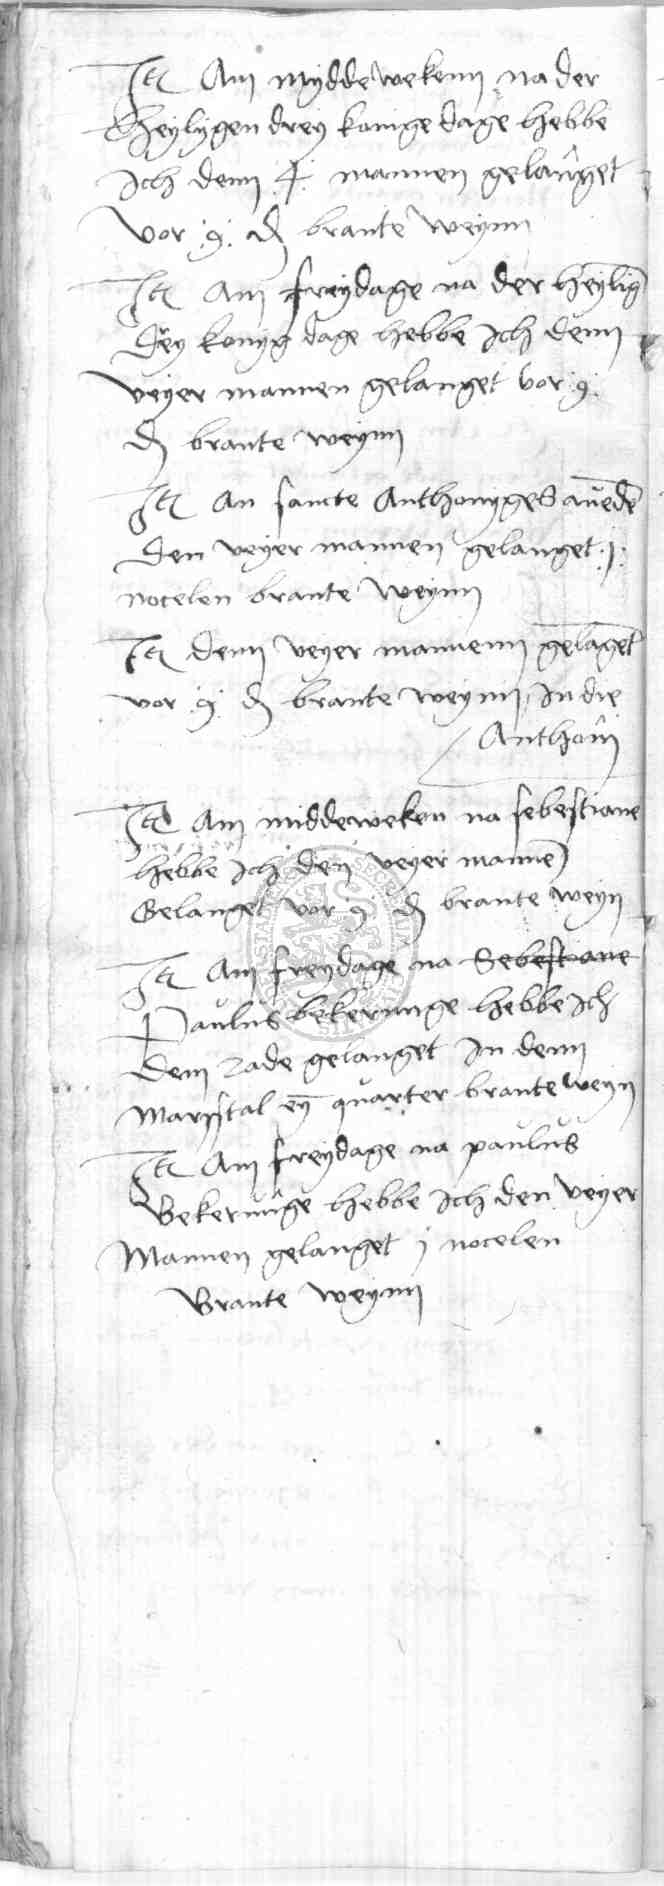 Itē Am mydde wekenn na der
Heylygen drey konige dage hebbe
Ich denn .4. mannen gelanget
vor .9. ₰ brante weynn
Itē Am freydage na der heylig
drey konyg dage hebbe Ich denn
veyer mannen gelanget vor .9.
₰ brante weynn
Itē An sancte Anthonyges auende
den veyer mannen gelanget .j.
nocelen brante weynn
Itē denn veyer mannenn gelāget
vor .9. ₰ brante weynn In die
Anthoni
Itē Am middeweken na sebestiane
hebbe Ich den veyer mannē
Gelanget vor 9 ₰ brante weyn
Itē Am freydage na Sebestiane
Paulus bekerunge hebbe Ich
dem rade gelanget In denn
Marstal eȳ quarter brante weyn
Itē Am freydage na paulus
Bekerunge hebbe Ich den veyer
Mannen gelanget j nocelen
Brante weynn